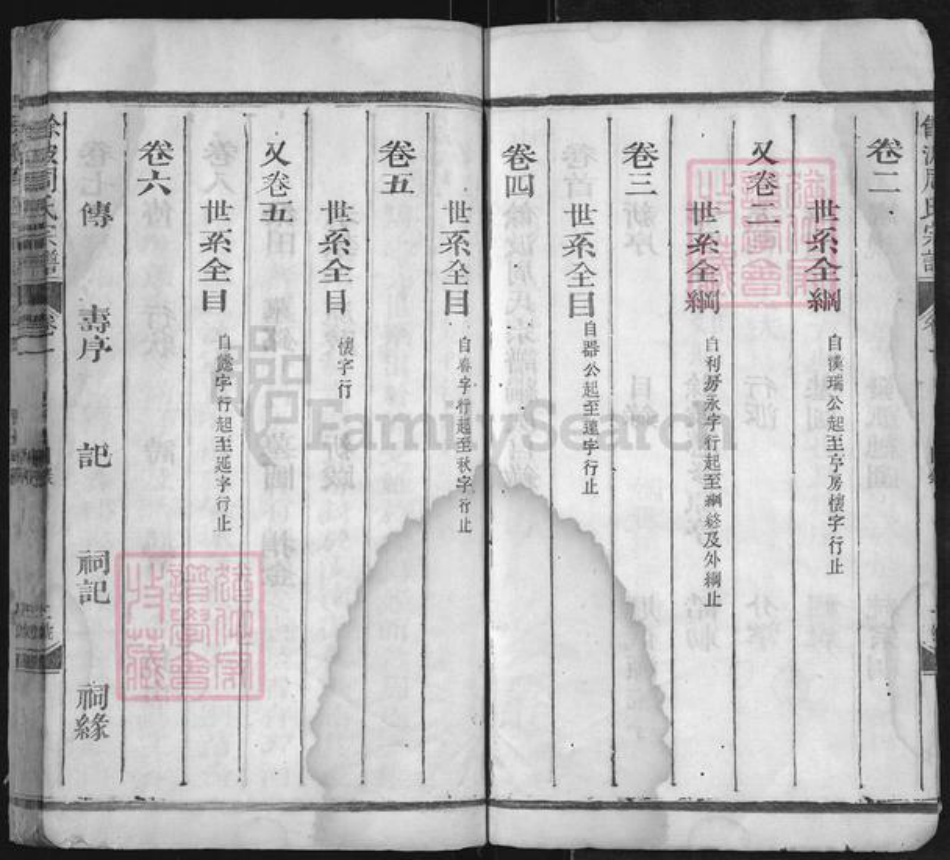 卷二
世系全綱 自漢瑞公起至亨房懷字行止
又卷二
世系全綱 自利房永字行起至綱終及外綱止
卷三
世系全目 自器公起至遠字行止
卷四
世系全目 自春字行起至秋字行止
卷五
世系全目 懷字行
又卷五
世系全目 自懿字行起至延字行止
卷六
傳 壽序 記 祠記 祠緣
餘波周氏宗譜 卷一
FamilySearch